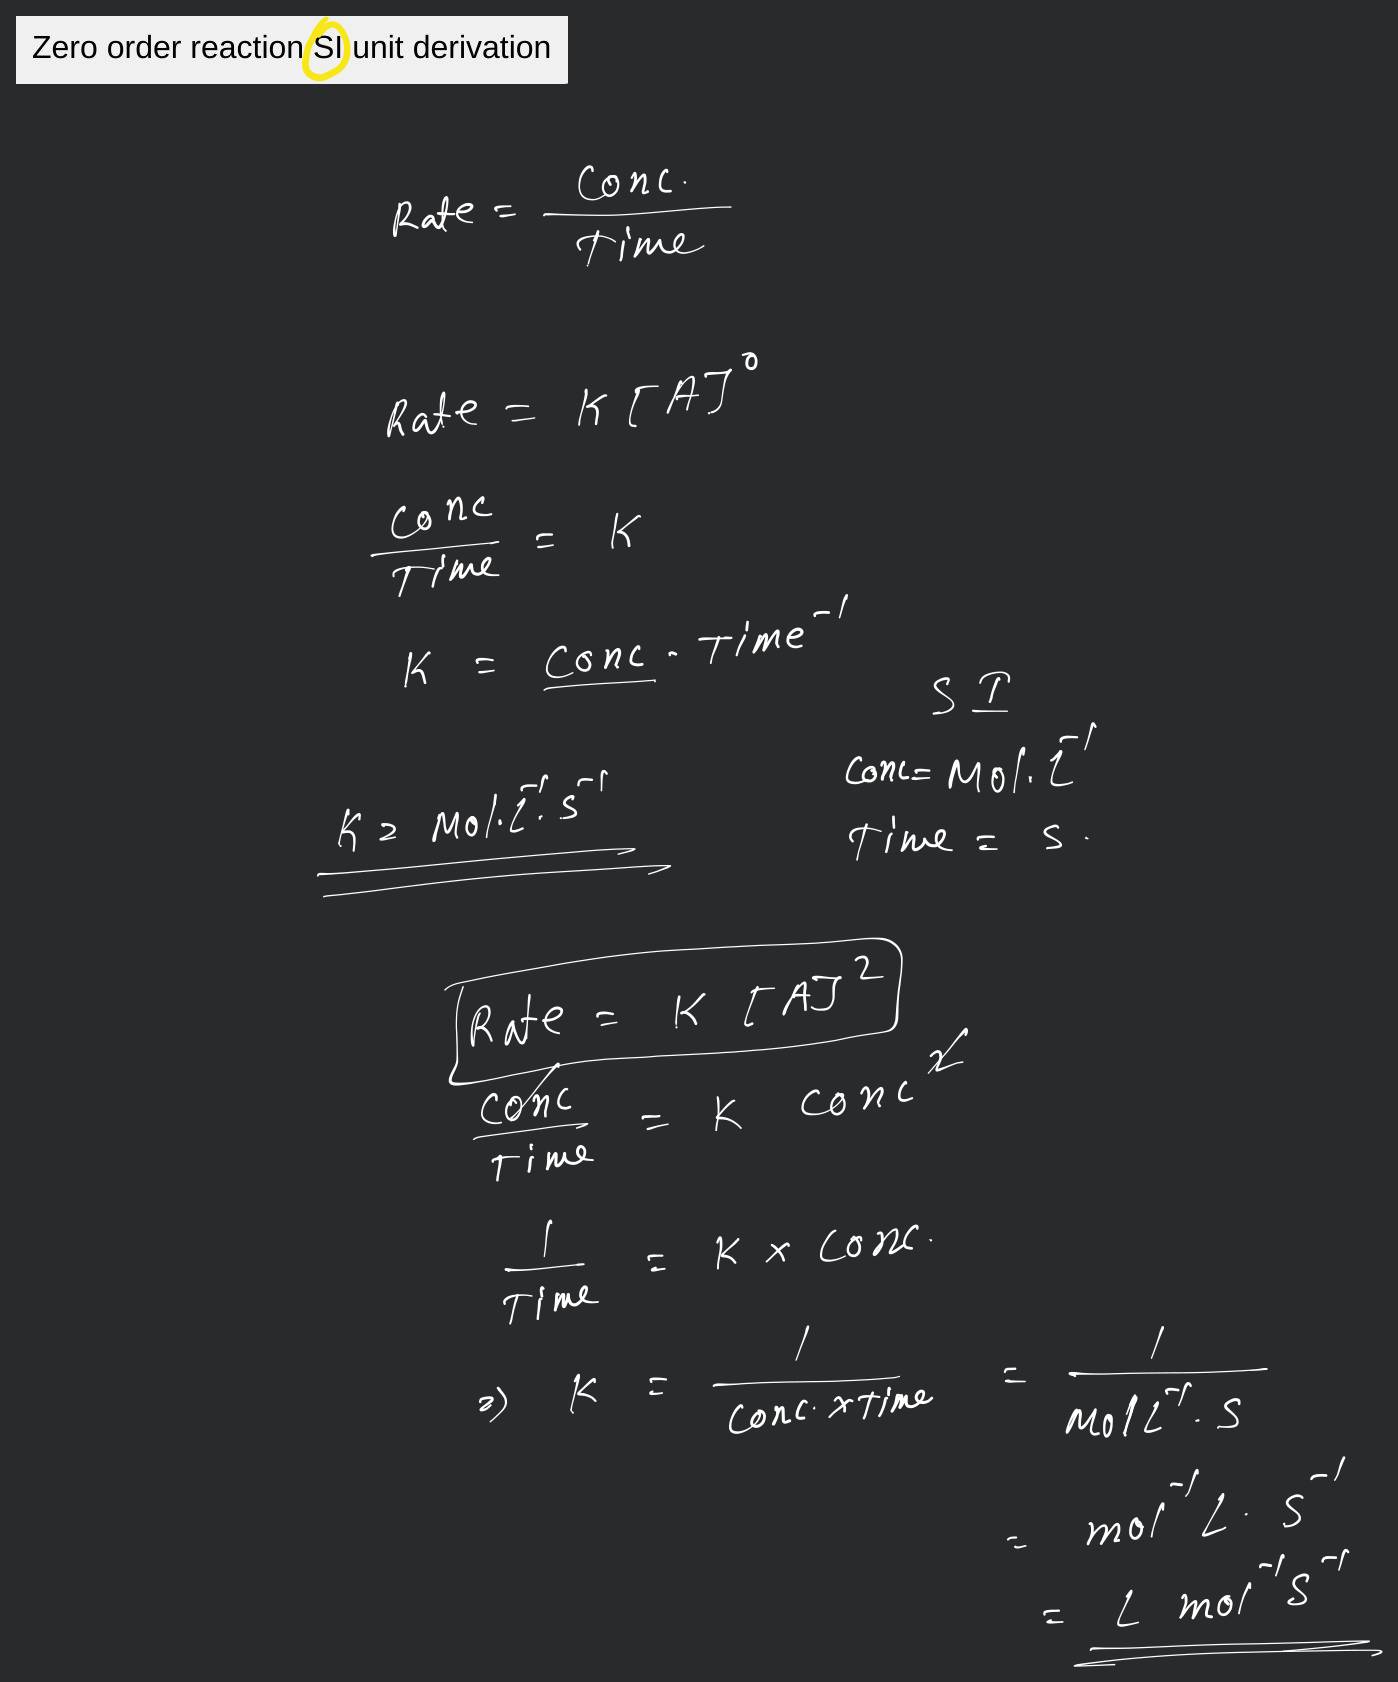 Zero order reaction SI unit derivation
Rate = Conc. / Time
Rate = K [A]⁰
Conc / Time = K
K = Conc · Time⁻¹
SI
Conc = Mol. L⁻¹
Time = s.
K = Mol. L⁻¹. s⁻¹
Rate = K [A]²
Conc / Time = K Conc²
1 / Time = K × Conc.
⇒ K = 1 / Conc. × Time = 1 / Mol L⁻¹. S
= mol⁻¹ L. S⁻¹
= L mol⁻¹ S⁻¹